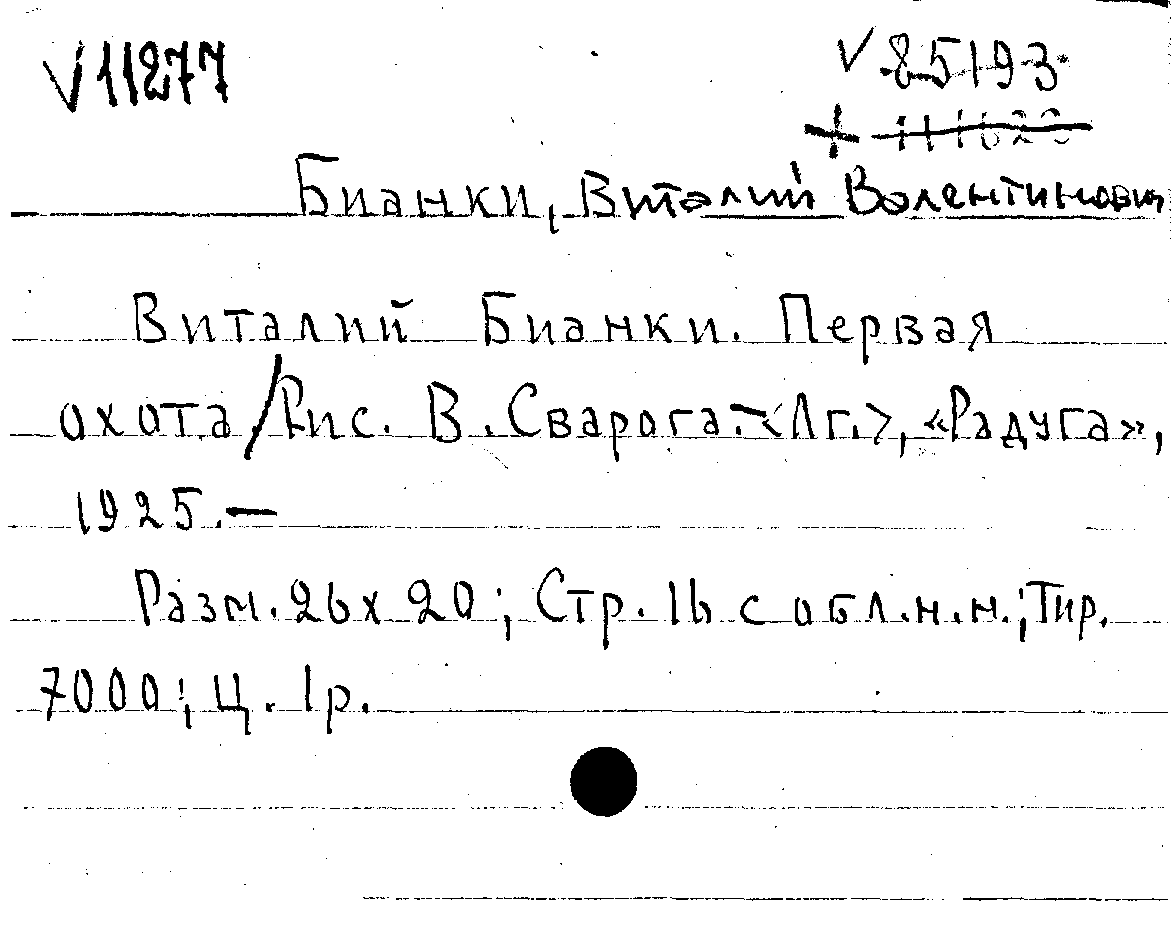 √11277
√85193
Бианки, Виталий Валентинович
Виталий Бианки. Первая
охота/Рис. В. Сварога.–<Лг.>, «Радуга»,
1925.—
Разм. 26х20; Стр. 16 с обл.н.н.; Тир.
7000; Ц. 1р.